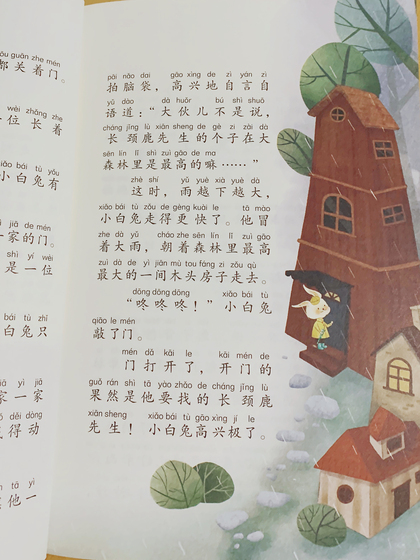 ōu guān zhe mén
都关着门。
wèi zhǎng zhe
一位长着
xiǎo bái tù yǒu
小白兔有
jiā de mén
一家的门。
shì yí wèi
是一位
xiǎo bái tù zhǐ
小白兔只
yì jiā yì jiā
家一家
děi dòng
得动
tā yì
他一
pāi nǎo dai gāo xìng de zì yán zì
拍脑袋，高兴地自言自
yǔ dào dà huǒr bú shì shuō
语道：“大伙儿不是说，
cháng jǐng lù xiān sheng de gè zi zài dà
长颈鹿先生的个子在大
sēn lín lǐ shì zuì gāo de ma
森林里是最高的嘛……”
zhè shí yǔ yuè xià yuè dà
这时，雨越下越大，
xiǎo bái tù zǒu de gèng kuài le tā mào
小白兔走得更快了。他冒
zhe dà yǔ cháo zhe sēn lín lǐ zuì gāo
着大雨，朝着森林里最高
zuì dà de yì jiān mù tou fáng zi zǒu qù
最大的一间木头房子走去。
dōng dōng dōng xiǎo bái tù
“咚咚咚！”小白兔
qiāo le mén
敲了门。
mén dǎ kāi le kāi mén de
门打开了，开门的
guǒ rán shì tā yào zhǎo de cháng jǐng lù
果然是他要找的长颈鹿
xiān sheng xiǎo bái tù gāo xìng jí le
先生！小白兔高兴极了。